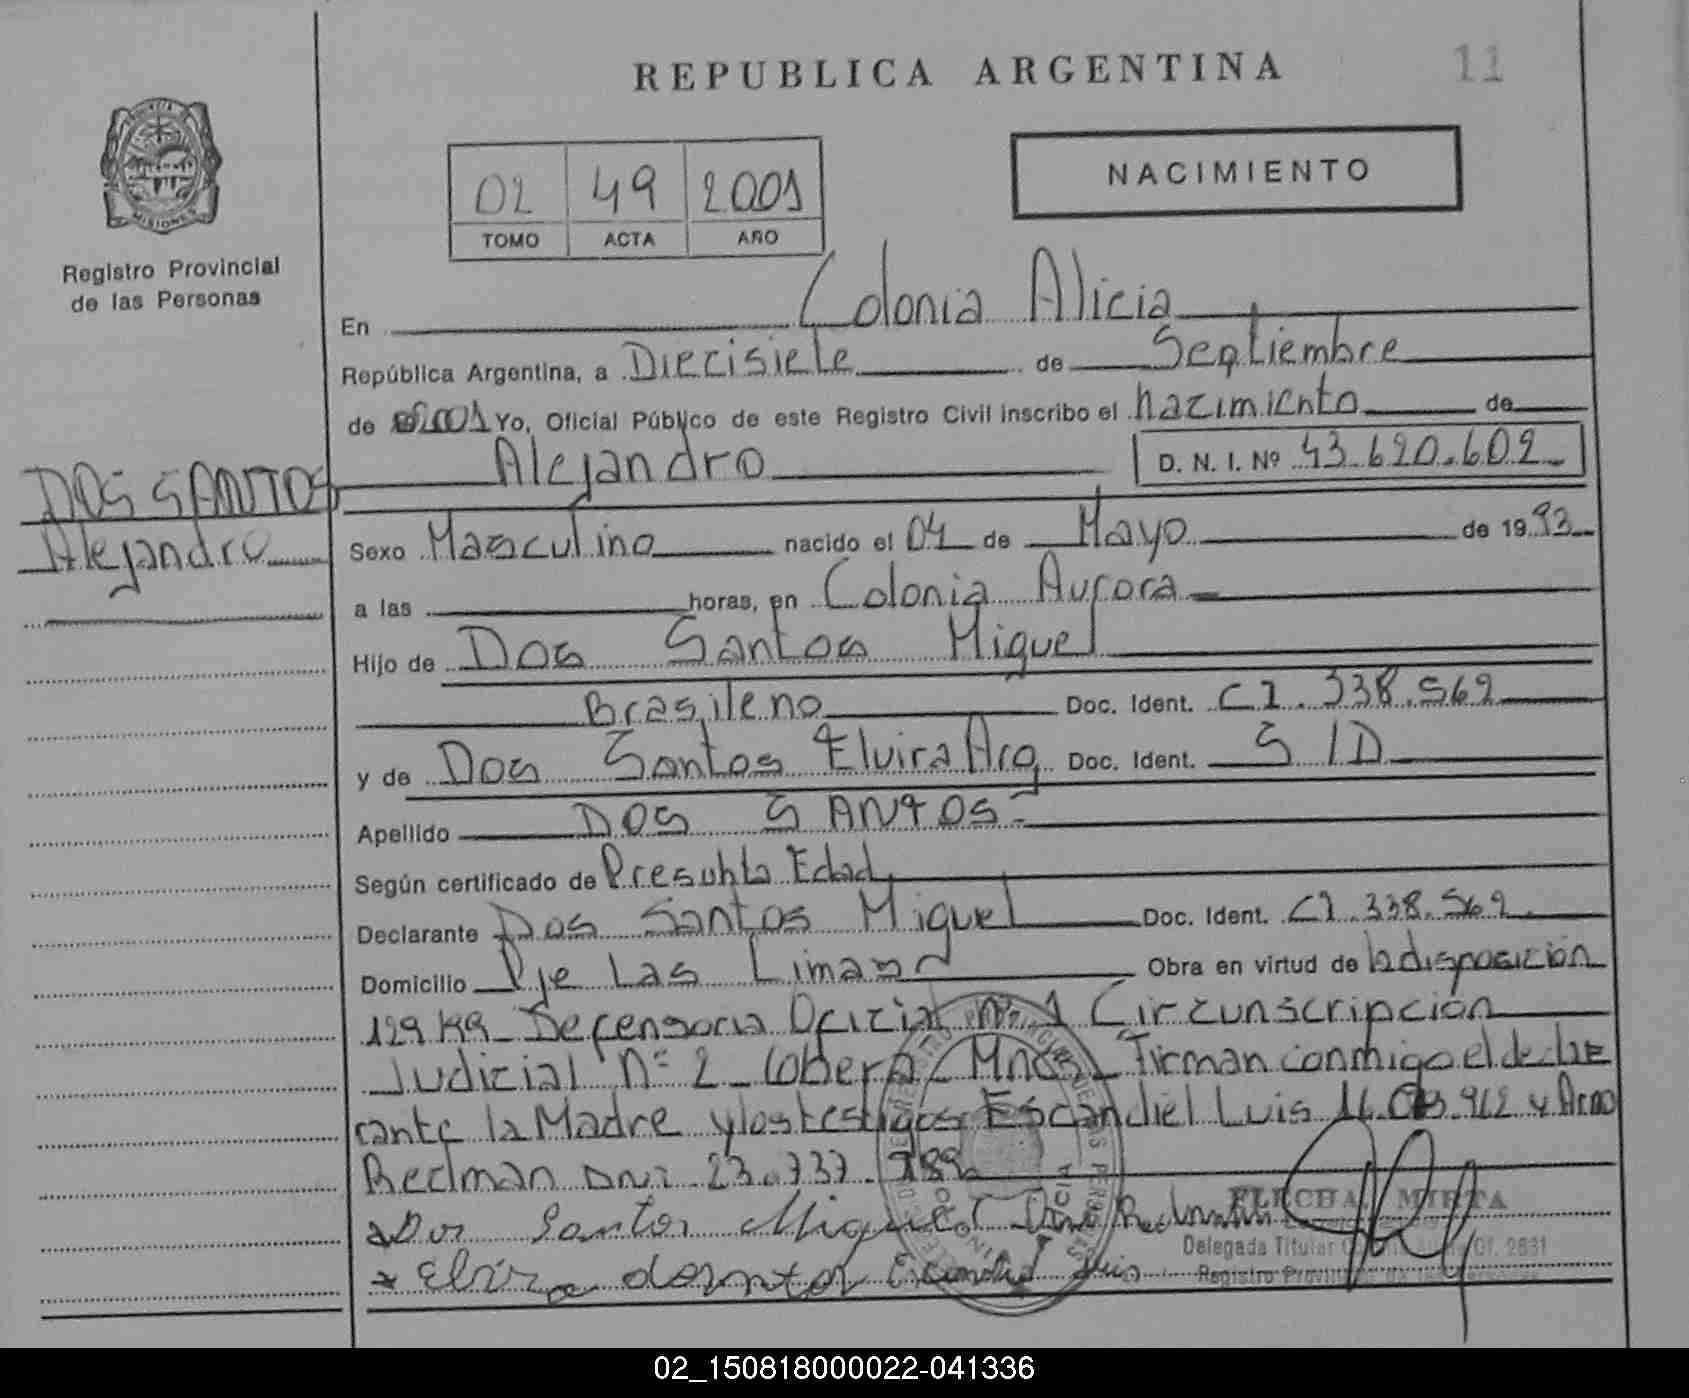 REPUBLICA ARGENTINA
11
PROVINCIA
MISIONES
Registro Provincial
de las Personas
02 49 2001
TOMO ACTA AÑO
NACIMIENTO
En Colonia Alicia
República Argentina, a Diecisiete de Septiembre
de 2001 Yo, Oficial Público de este Registro Civil inscribo el nacimiento de
Alejandro D. N. I. Nº 43.620.602
DOS SANTOS
Alejandro
Sexo Masculino nacido el 04 de Mayo de 1993
a las horas, en Colonia Aurora
Hijo de Dos Santos Miguel
Brasileno Doc. Ident. CI. 338.562
y de Dos Santos Elvira Arg Doc. Ident. S/D
Apellido DOS SANTOS
Según certificado de Presunta Edad
Declarante Dos Santos Miguel Doc. Ident. CI. 338.562
Domicilio Pje Las Limas Obra en virtud de la disposición
129/99 Defensoria Oficial Nº 1 Circunscripción
Judicial Nº 2 Obera Mnes Firman conmigo el decla
rante la Madre y los testigos Escandiel Luis y
Redman DNI 23.737.789
Dos Santos Miguel
Elvira dosantos Luis
FLECHA MIRTA
Delegada Titular Of. 2831
Registro Provincial de las Personas
02_150818000022-041336